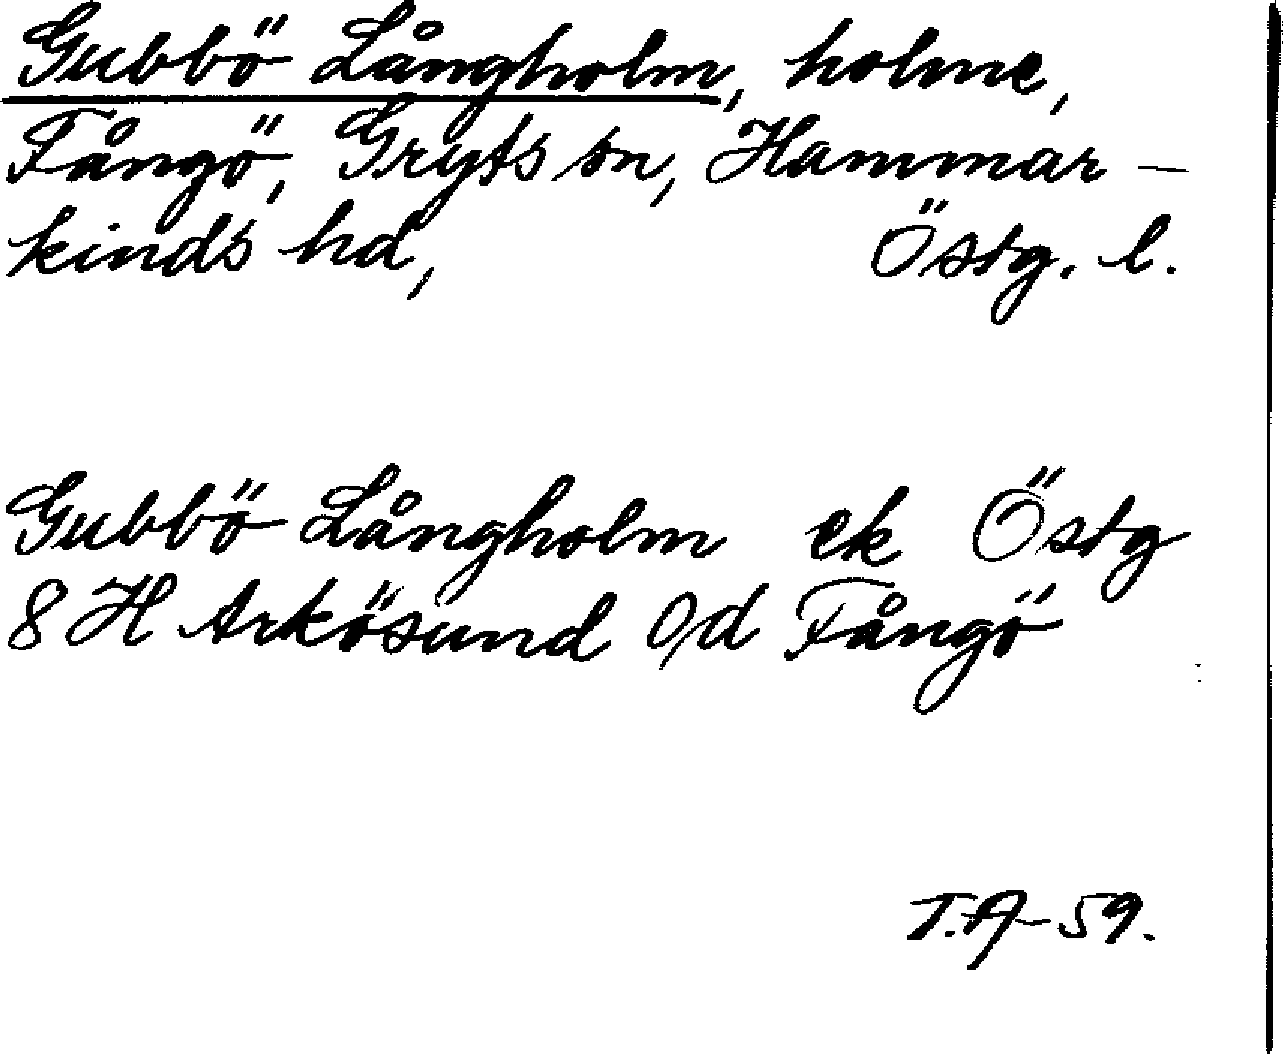 Gubbö Långholm, holme,
Fångö, Gryts sn, Hammar-
kinds hd, Östg. l.
Gubbö Långholm ek Östg
8 H Arkösund o/d Fångö
T.A-59.